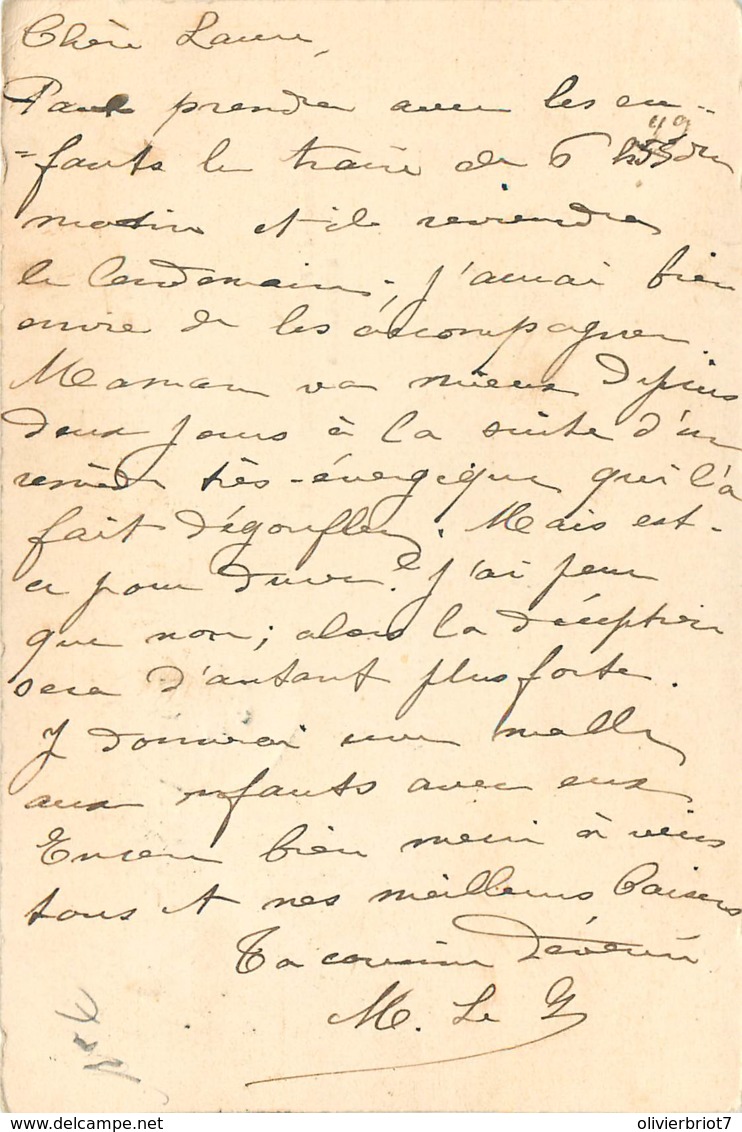 Chère Laure,
Paul prendra avec les en-
-fants le train de 6 h 55 du
49
matin et il reviendra
le lendemain; j'aurai bien
envie de les accompagner.
Maman va mieux depuis
deux jours à la suite d'un
remède très-énergique qui l'a
fait dégonfler. Mais est-
ce pour durer? J'ai peur
que non; alors la déception
sera d'autant plus forte.
Je donnerai une malle
aux enfants avec eux
Encore bien merci à vous
tous et nos meilleurs baisers
Ta cousine dévouée
M. Le
olivierbriot7